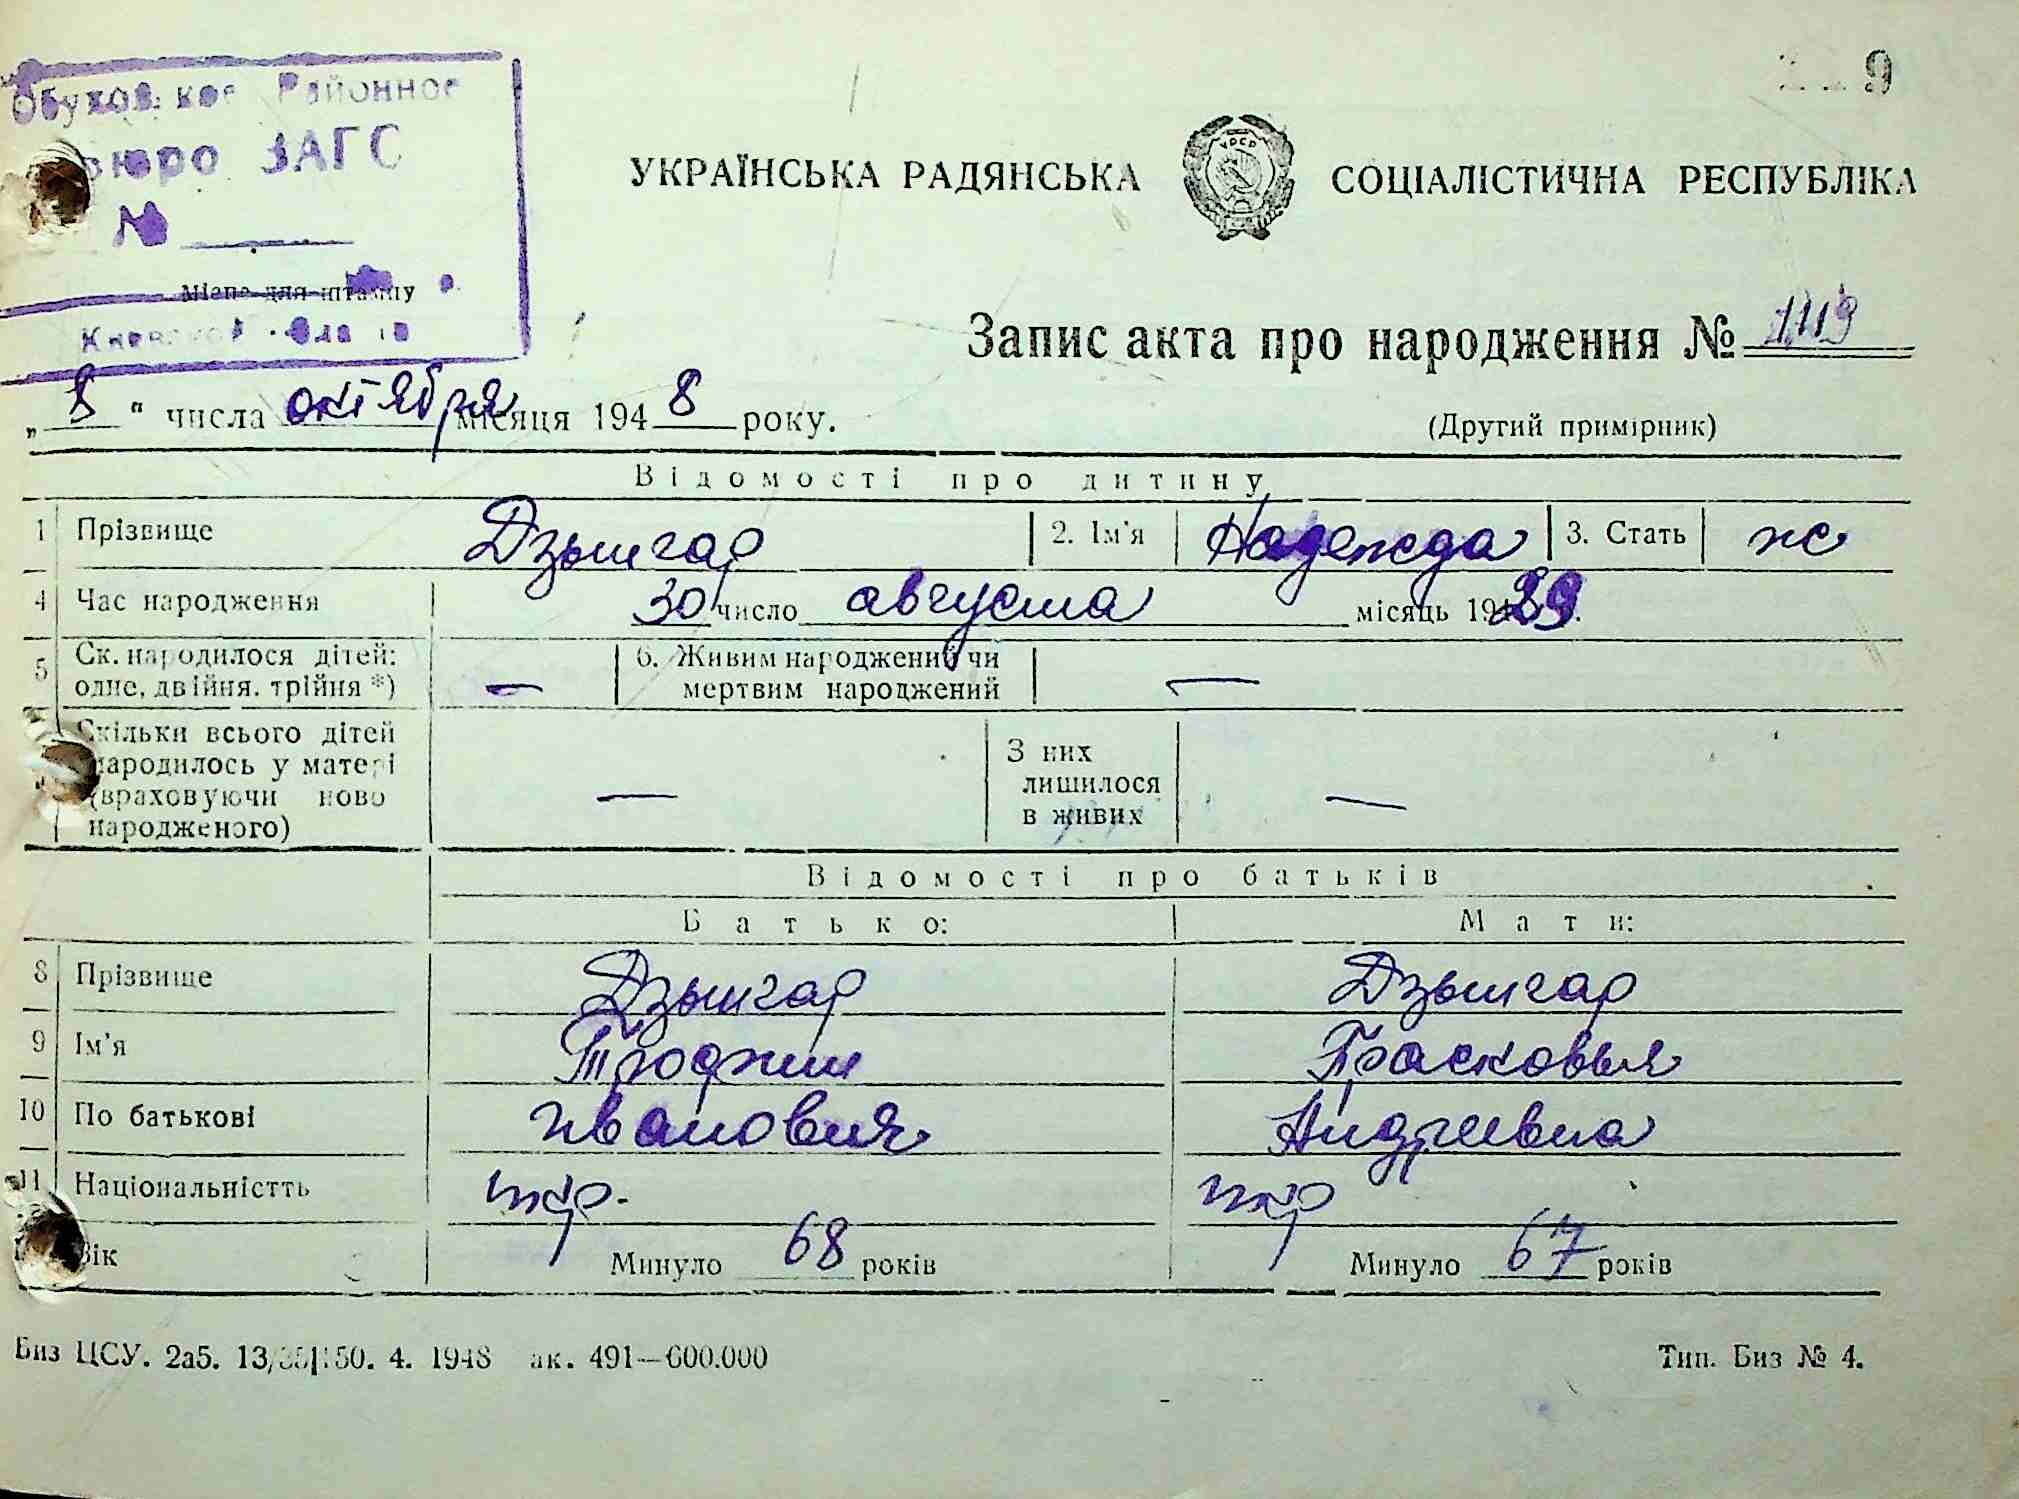 Районное
бюро ЗАГС
№
Місце для штампу
9
УКРАЇНСЬКА РАДЯНСЬКА СОЦІАЛІСТИЧНА РЕСПУБЛІКА
УРСР
Запис акта про народження № 1119
„ 8 “ числа октября місяця 1948 року.
(Другий примірник)
Відомості про дитину
1 Прізвище Дзышгар 2. Ім'я Надежда 3. Стать ж
4 Час народження 30 число августа місяць 1929.
5 Ск. народилося дітей: одне, двійня, трійня *) — 6. Живим народжений чи мертвим народжений —
Скільки всього дітей народилось у матері (враховуючи ново народженого) — З них лишилося в живих —
Відомості про батьків
Батько: Мати:
8 Прізвище Дзышгар Дзышгар
9 Ім'я Трофим Прасковья
10 По батькові Иванович Андреевна
11 Національністть укр. укр
Вік Минуло 68 років Минуло 67 років
Биз ЦСУ. 2а5. 4. 1948 491—600.000
Тип. Биз № 4.